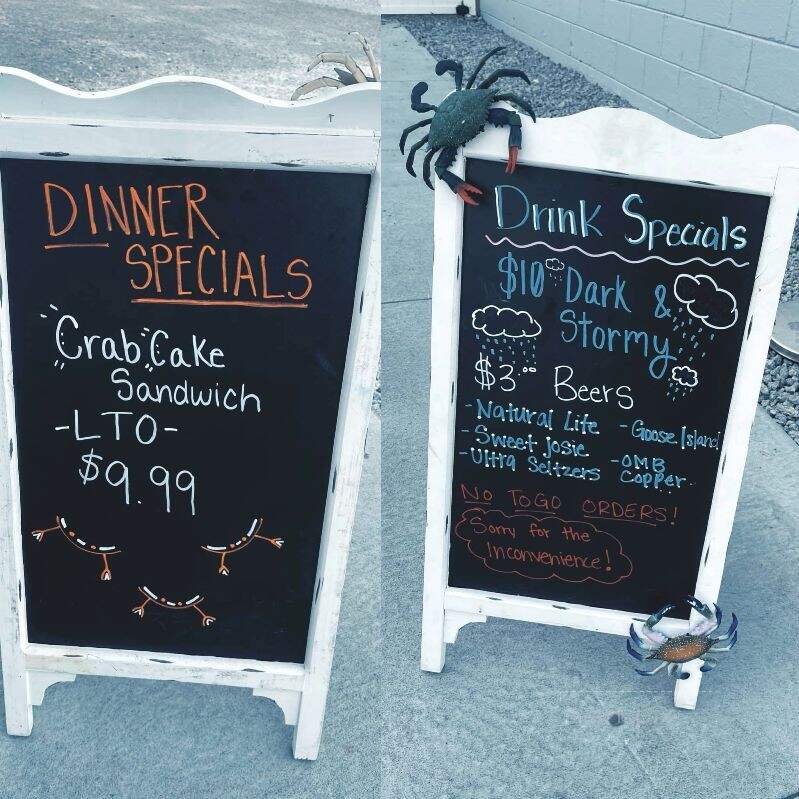 DINNER
SPECIALS
Crab Cake
Sandwich
-LTO-
$9.99
Drink Specials
$10 Dark &
Stormy
$3.00 Beers
- Natural Lite
- Sweet Josie
- Ultra Seltzers
- Goose Island
- OMB
Copper
NO TOGO ORDERS!
Sorry for the
Inconvenience!